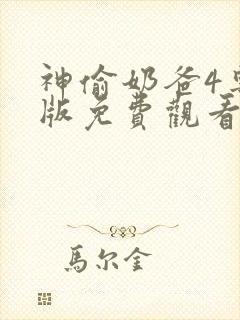 神偷奶爸4
版免費觀看
馬尔金